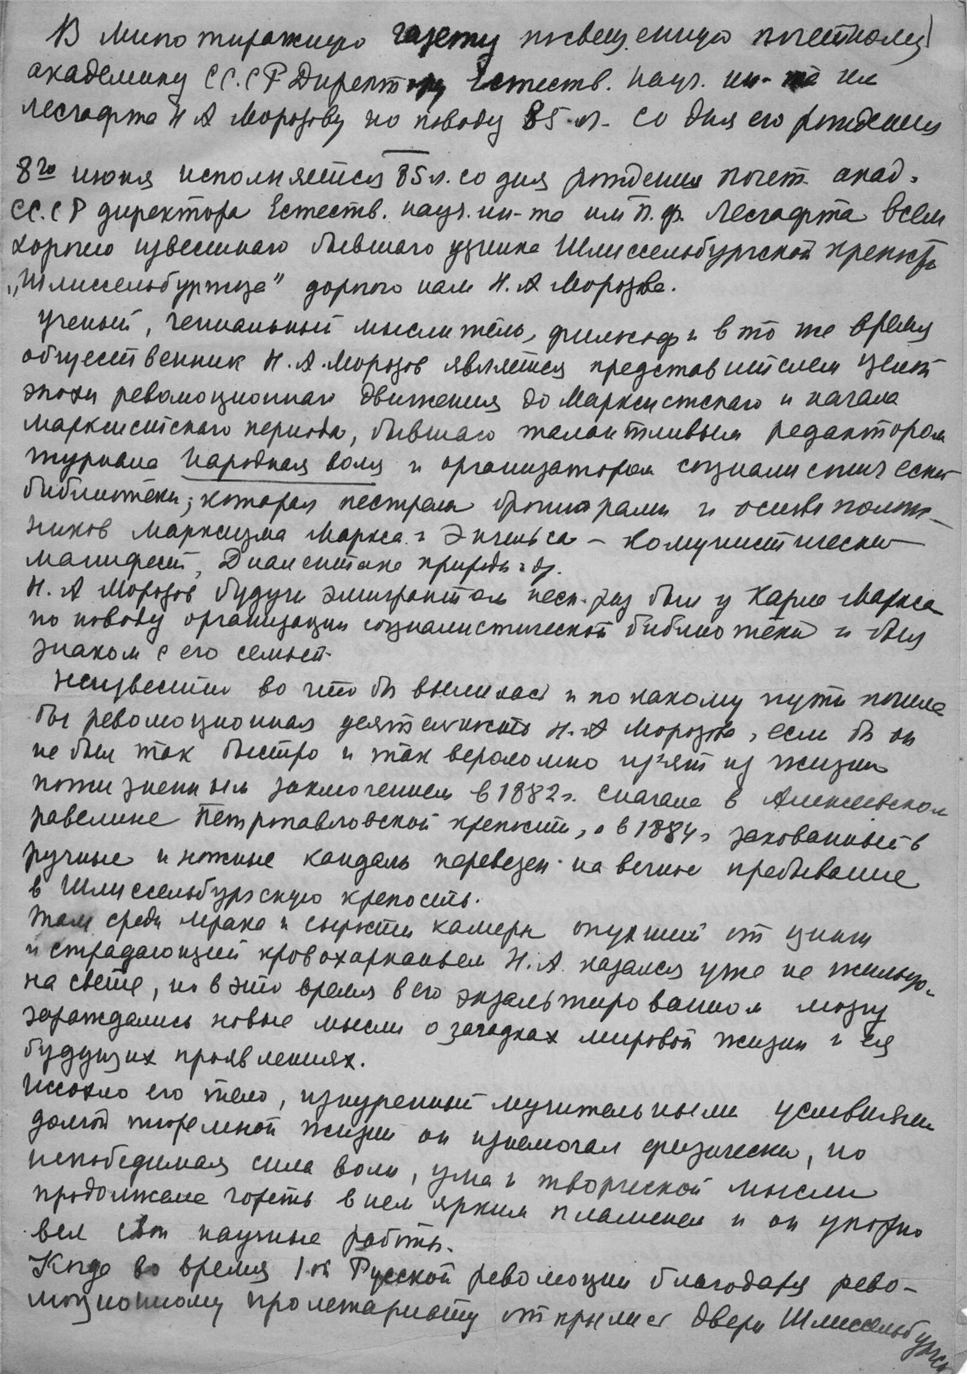 В многотиражную газету посвещенную почетному
академику СС.СР Директору Естеств. науч. ин-та им
Лесгафта Н А Морозову по поводу 85 л. со дня его рождения
8го июня исполняется 85 л. со дня рождения почет. акад.
СС.СР директора Естеств. науч. ин-та им П.Ф. Лесгафта всем
хорошо известного бывшаго узника Шлиссельбургской крепости
„Шлиссельбуржца" дорогого нам Н. А Морозова.
Ученый, гениальный мыслитель, философ и в то же время
общественник Н. А. Морозов является представителем целой
эпохи революционнаго движения до Марксистскаго и начала
марксистскаго периода, бывшаго талантливым редактором
журнала Народная воля и организатором социалистической
библиотеки, которая пестрела брошюрами и основоположников
Марксизма Маркса и Энгельса – Комунистический
манифест, Диалектика природы и др.
Н. А Морозов будучи эмигрантом неск. раз был у Карла Маркса
по поводу организации социалистической библиотеки и был
знаком с его семьей.
Неизвестно во что бы вылилась и по какому пути пошла
бы революционная деятельность Н. А Морозова, если бы он
не был так быстро и так вероломно изъят из жизни
пожизненным заключением в 1882 г. сначала в Алексеевском
равелине Петропавловской крепости, а в 1884 г закованный в
ручные и ножные кандалы перевезен на вечное пребывание
в Шлиссельбургскую крепость.
Там среди мрака и сырости камеры опухший от цинги
и страдающий кровохарканьем Н. А. казался уже не жильцом
на свете, но в это время в его экзальтированном мозгу
зарождались новые мысли о загадках мировой жизни и ея
будущих проявлениях.
Иссохло его тело, изнуренный мучительными условиями
долгой тюремной жизни он изнемогал физически, но
непобедимая сила воли, ума и творческой мысли
продолжала гореть в нем ярким пламенем и он упорно
вел свои научные работы.
Когда во время 1-ой Русской революции благодаря рево-
люционному пролетариату открылись двери Шлиссельбургск